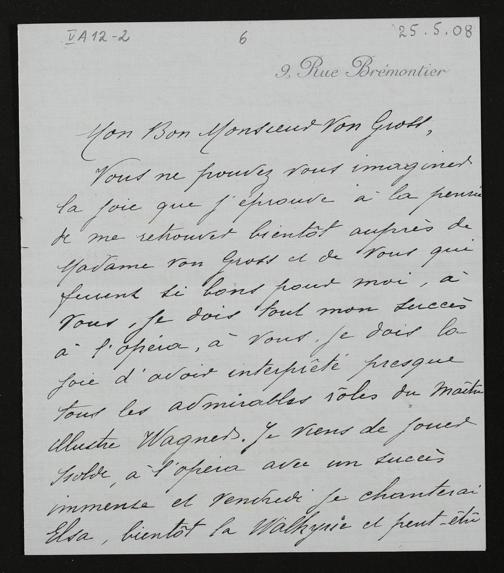 V A 12-2
6
25.5.08
9, Rue Brémontier
Mon Bon Monsieur Von Gross,
Vous ne pouvez vous imaginer
la joie que j'éprouve à la pensée
de me retrouver bientôt auprès de
Madame von Gross et de vous qui
furent si bons pour moi, à
vous, je dois tout mon succès
à l'opéra, à vous, je dois la
joie d'avoir interprêté presque
tous les admirables rôles du Maître
illustre Wagner. Je viens de jouer
Isolde, à l'opéra avec un succès
immense et vendredi je chanterai
Elsa, bientôt la Walkyrie et peut-être